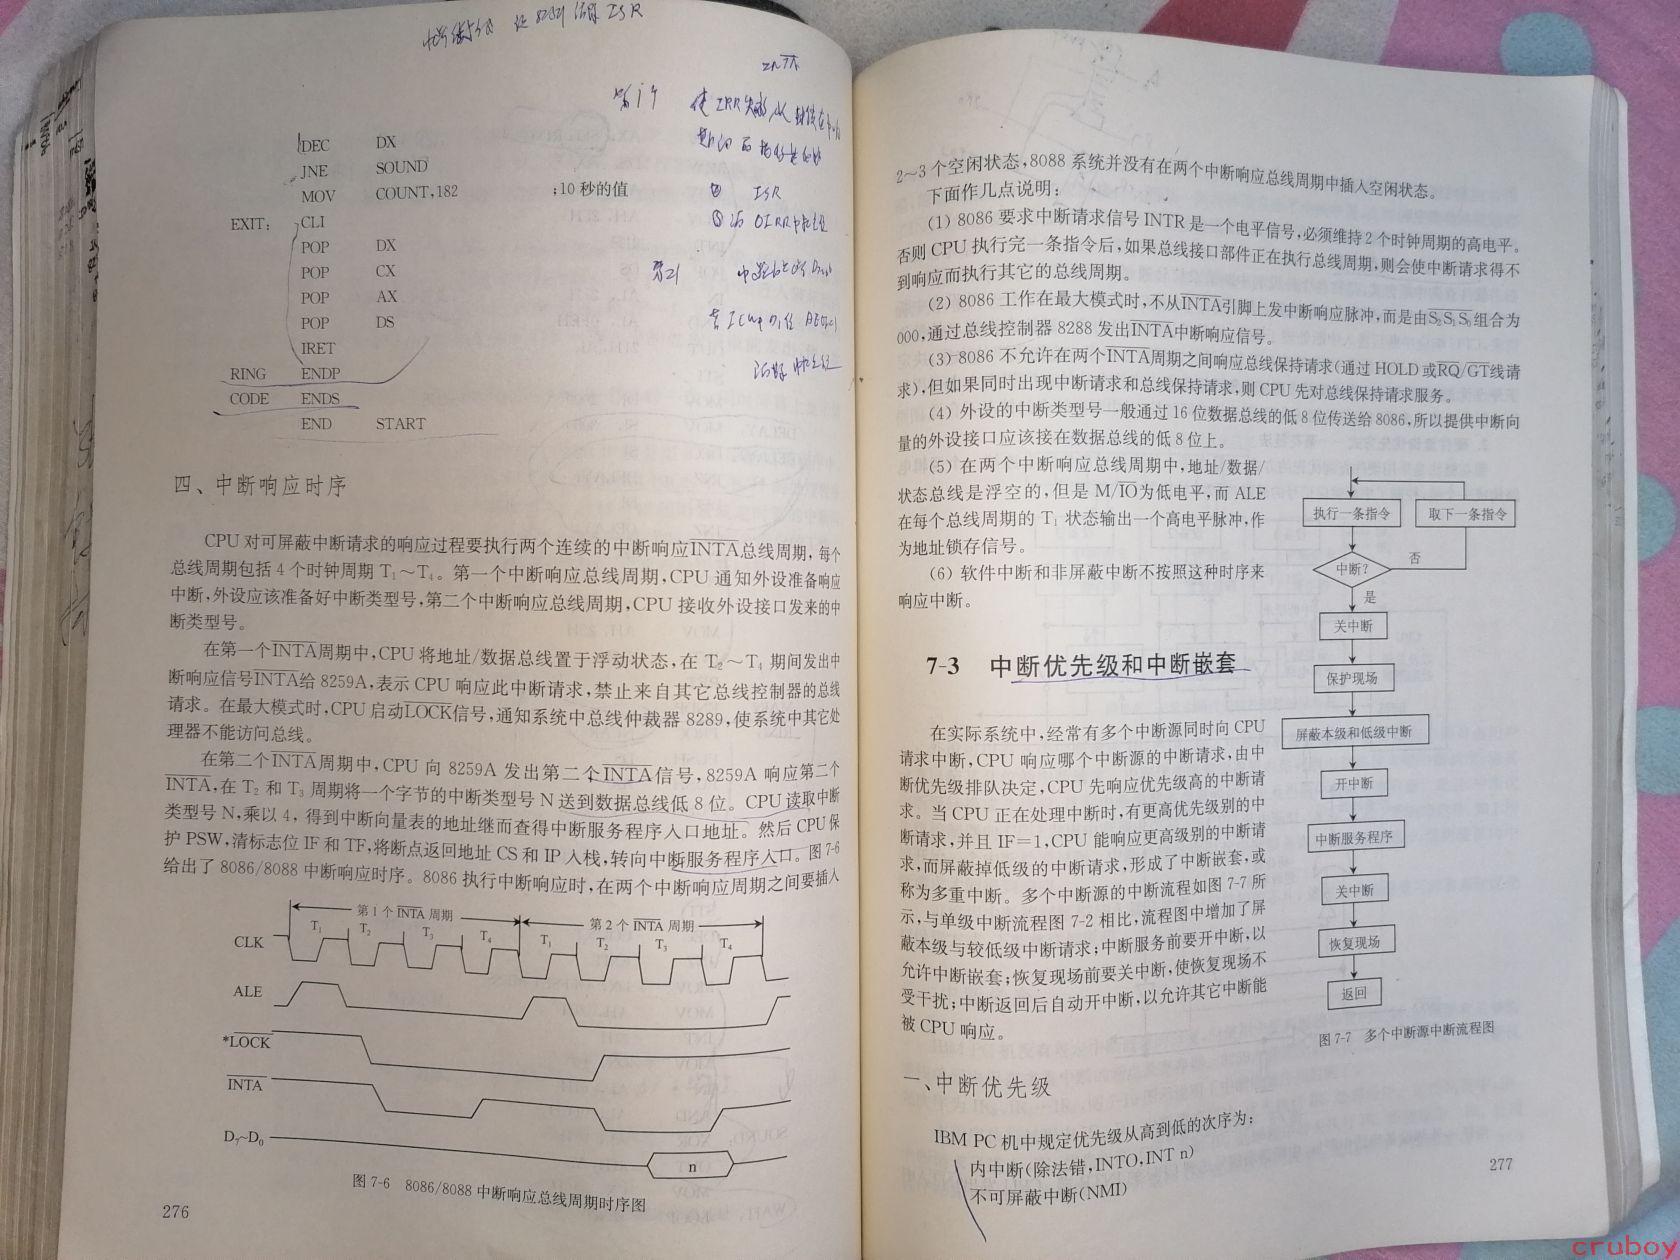 DEC DX
JNE SOUND
MOV COUNT,182 ;10 秒的值
EXIT: CLI
POP DX
POP CX
POP AX
POP DS
IRET
RING ENDP
CODE ENDS
END START
四、中断响应时序
CPU 对可屏蔽中断请求的响应过程要执行两个连续的中断响应INTA总线周期，每个
总线周期包括 4 个时钟周期 T₁～T₄。第一个中断响应总线周期,CPU 通知外设准备响应
中断,外设应该准备好中断类型号,第二个中断响应总线周期,CPU 接收外设接口发来的中
断类型号。
在第一个INTA周期中,CPU 将地址/数据总线置于浮动状态,在 T₂～T₄ 期间发出中
断响应信号INTA给 8259A,表示 CPU 响应此中断请求,禁止来自其它总线控制器的总线
请求。在最大模式时,CPU 启动LOCK信号,通知系统中总线仲裁器 8289,使系统中其它处
理器不能访问总线。
在第二个INTA周期中,CPU 向 8259A 发出第二个INTA信号,8259A 响应第二个
INTA,在 T₂ 和 T₃ 周期将一个字节的中断类型号 N 送到数据总线低 8 位。CPU 读取中断
类型号 N,乘以 4，得到中断向量表的地址继而查得中断服务程序入口地址。然后 CPU 保
护 PSW,清标志位 IF 和 TF,将断点返回地址 CS 和 IP 入栈,转向中断服务程序入口。图 7-6
给出了 8086/8088 中断响应时序。8086 执行中断响应时,在两个中断响应周期之间要插入
第 1 个 INTA 周期 第 2 个 INTA 周期
T₁ T₂ T₃ T₄ T₁ T₂ T₃ T₄
CLK
ALE
*LOCK
INTA
D₇~D₀
n
图 7-6 8086/8088 中断响应总线周期时序图
276
2～3 个空闲状态,8088 系统并没有在两个中断响应总线周期中插入空闲状态。
下面作几点说明：
(1) 8086 要求中断请求信号 INTR 是一个电平信号,必须维持 2 个时钟周期的高电平。
否则 CPU 执行完一条指令后,如果总线接口部件正在执行总线周期,则会使中断请求得不
到响应而执行其它的总线周期。
(2) 8086 工作在最大模式时,不从INTA引脚上发中断响应脉冲,而是由S₂S₁S₀组合为
000,通过总线控制器 8288 发出INTA中断响应信号。
(3) 8086 不允许在两个INTA周期之间响应总线保持请求(通过 HOLD 或RQ/GT线请
求),但如果同时出现中断请求和总线保持请求,则 CPU 先对总线保持请求服务。
(4) 外设的中断类型号一般通过 16 位数据总线的低 8 位传送给 8086,所以提供中断向
量的外设接口应该接在数据总线的低 8 位上。
(5) 在两个中断响应总线周期中,地址/数据/
状态总线是浮空的,但是 M/IO为低电平,而 ALE
在每个总线周期的 T₁ 状态输出一个高电平脉冲,作
为地址锁存信号。
(6) 软件中断和非屏蔽中断不按照这种时序来
响应中断。
7-3 中断优先级和中断嵌套
在实际系统中,经常有多个中断源同时向 CPU
请求中断,CPU 响应哪个中断源的中断请求,由中
断优先级排队决定,CPU 先响应优先级高的中断请
求。当 CPU 正在处理中断时,有更高优先级别的中
断请求,并且 IF=1,CPU 能响应更高级别的中断请
求,而屏蔽掉低级的中断请求,形成了中断嵌套,或
称为多重中断。多个中断源的中断流程如图 7-7 所
示,与单级中断流程图 7-2 相比,流程图中增加了屏
蔽本级与较低级中断请求;中断服务前要开中断,以
允许中断嵌套;恢复现场前要关中断,使恢复现场不
受干扰;中断返回后自动开中断,以允许其它中断能
被 CPU 响应。
执行一条指令 取下一条指令
中断? 否
是
关中断
保护现场
屏蔽本级和低级中断
开中断
中断服务程序
关中断
恢复现场
返回
图 7-7 多个中断源中断流程图
一、中断优先级
IBM PC 机中规定优先级从高到低的次序为：
内中断(除法错,INTO,INT n)
不可屏蔽中断(NMI)
277
cruboy